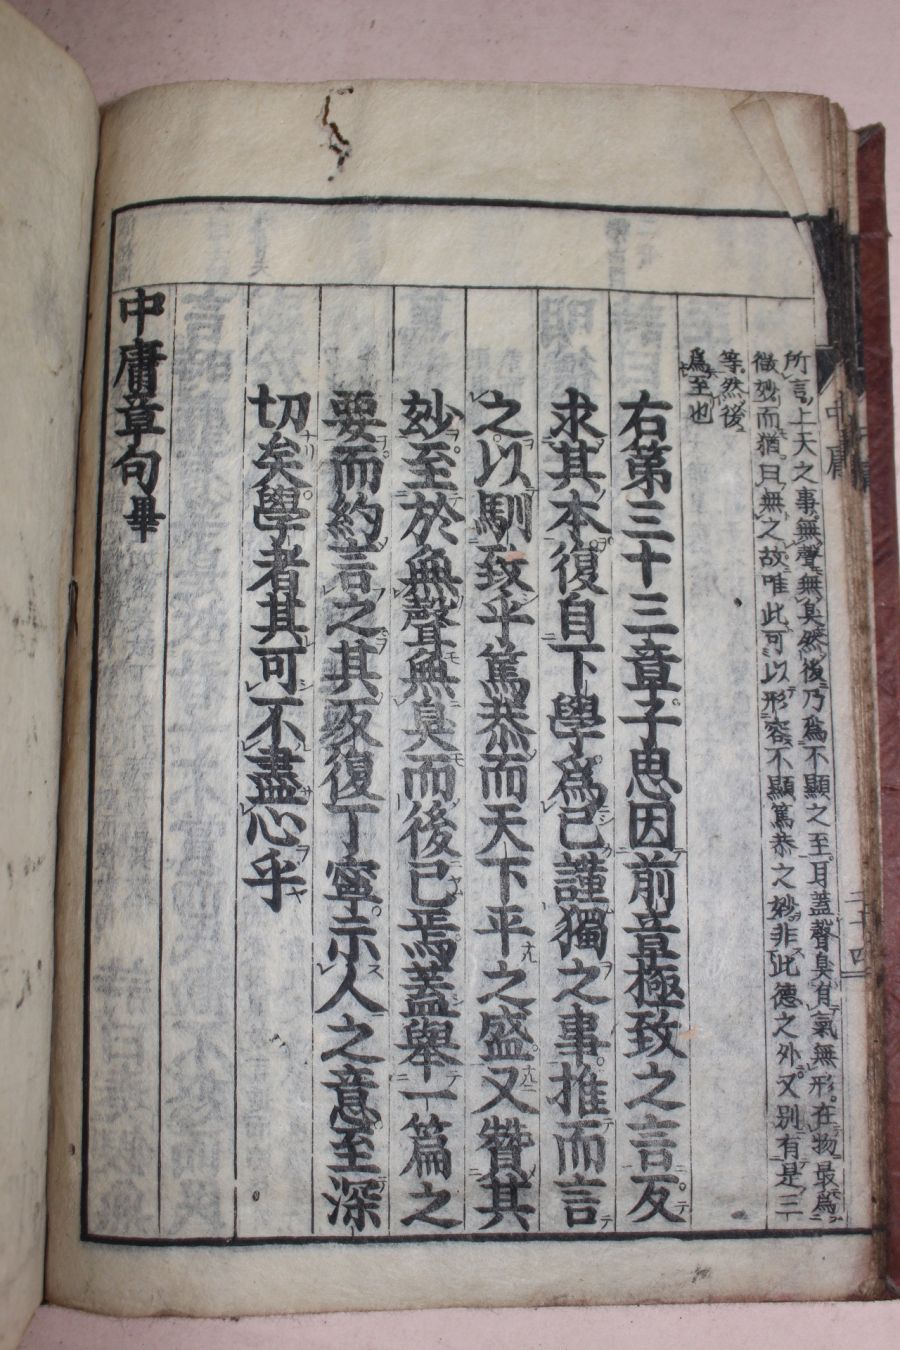 所言上天之事無聲無臭然後乃爲不顯之至耳蓋聲臭有氣無形在物最爲
微妙而猶曰無之故唯此可以形容不顯篤恭之妙非此德之外又別有是三
等然後
爲至也
右第三十三章子思因前章極致之言反
求其本復自下學爲己謹獨之事推而言
之以馴致乎篤恭而天下平之盛又贊其
妙至於無聲無臭而後已焉蓋舉一篇之
要而約言之其反復丁寧示人之意至深
切矣學者其可不盡心乎
中庸章句畢